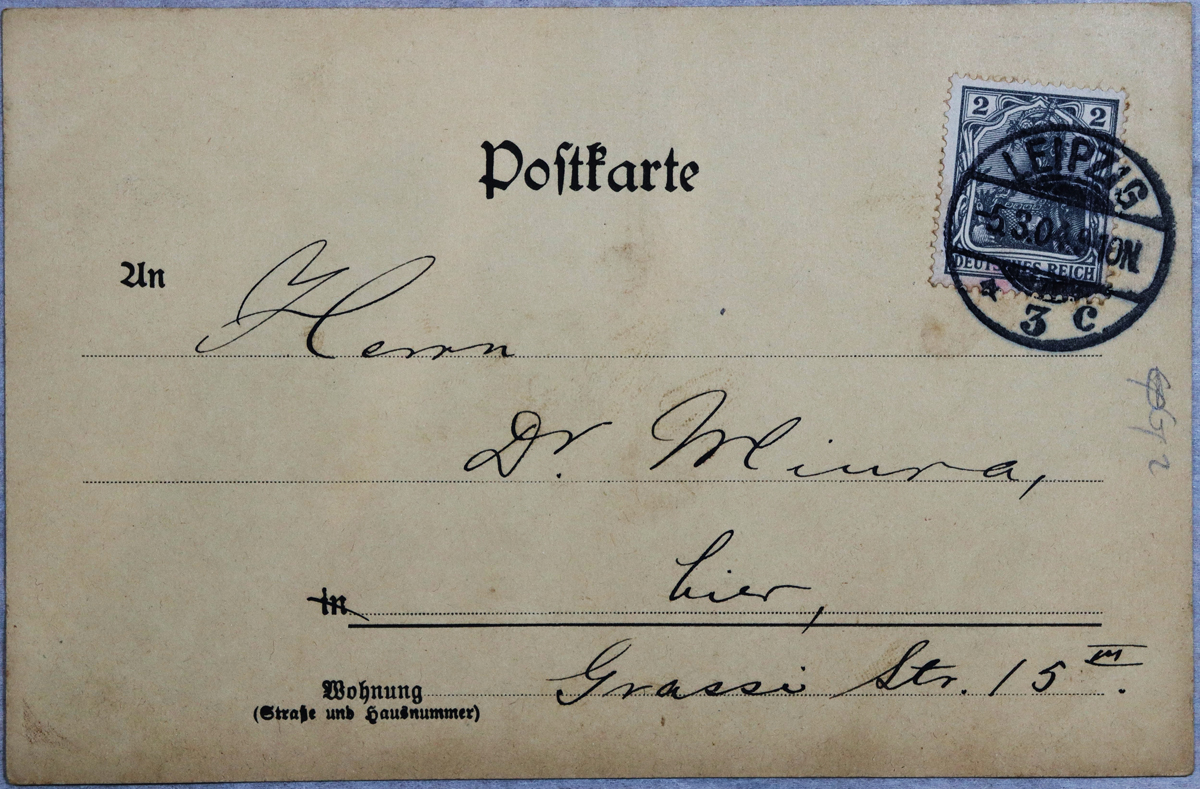 Postkarte
2 2
DEUTSCHES REICH
LEIPZIG
-5.3.04.9-10N.
* 3 c
An Herrn
Dr. Miura,
in hier,
Wohnung Grassi Str. 15 III.
(Straße und Hausnummer)